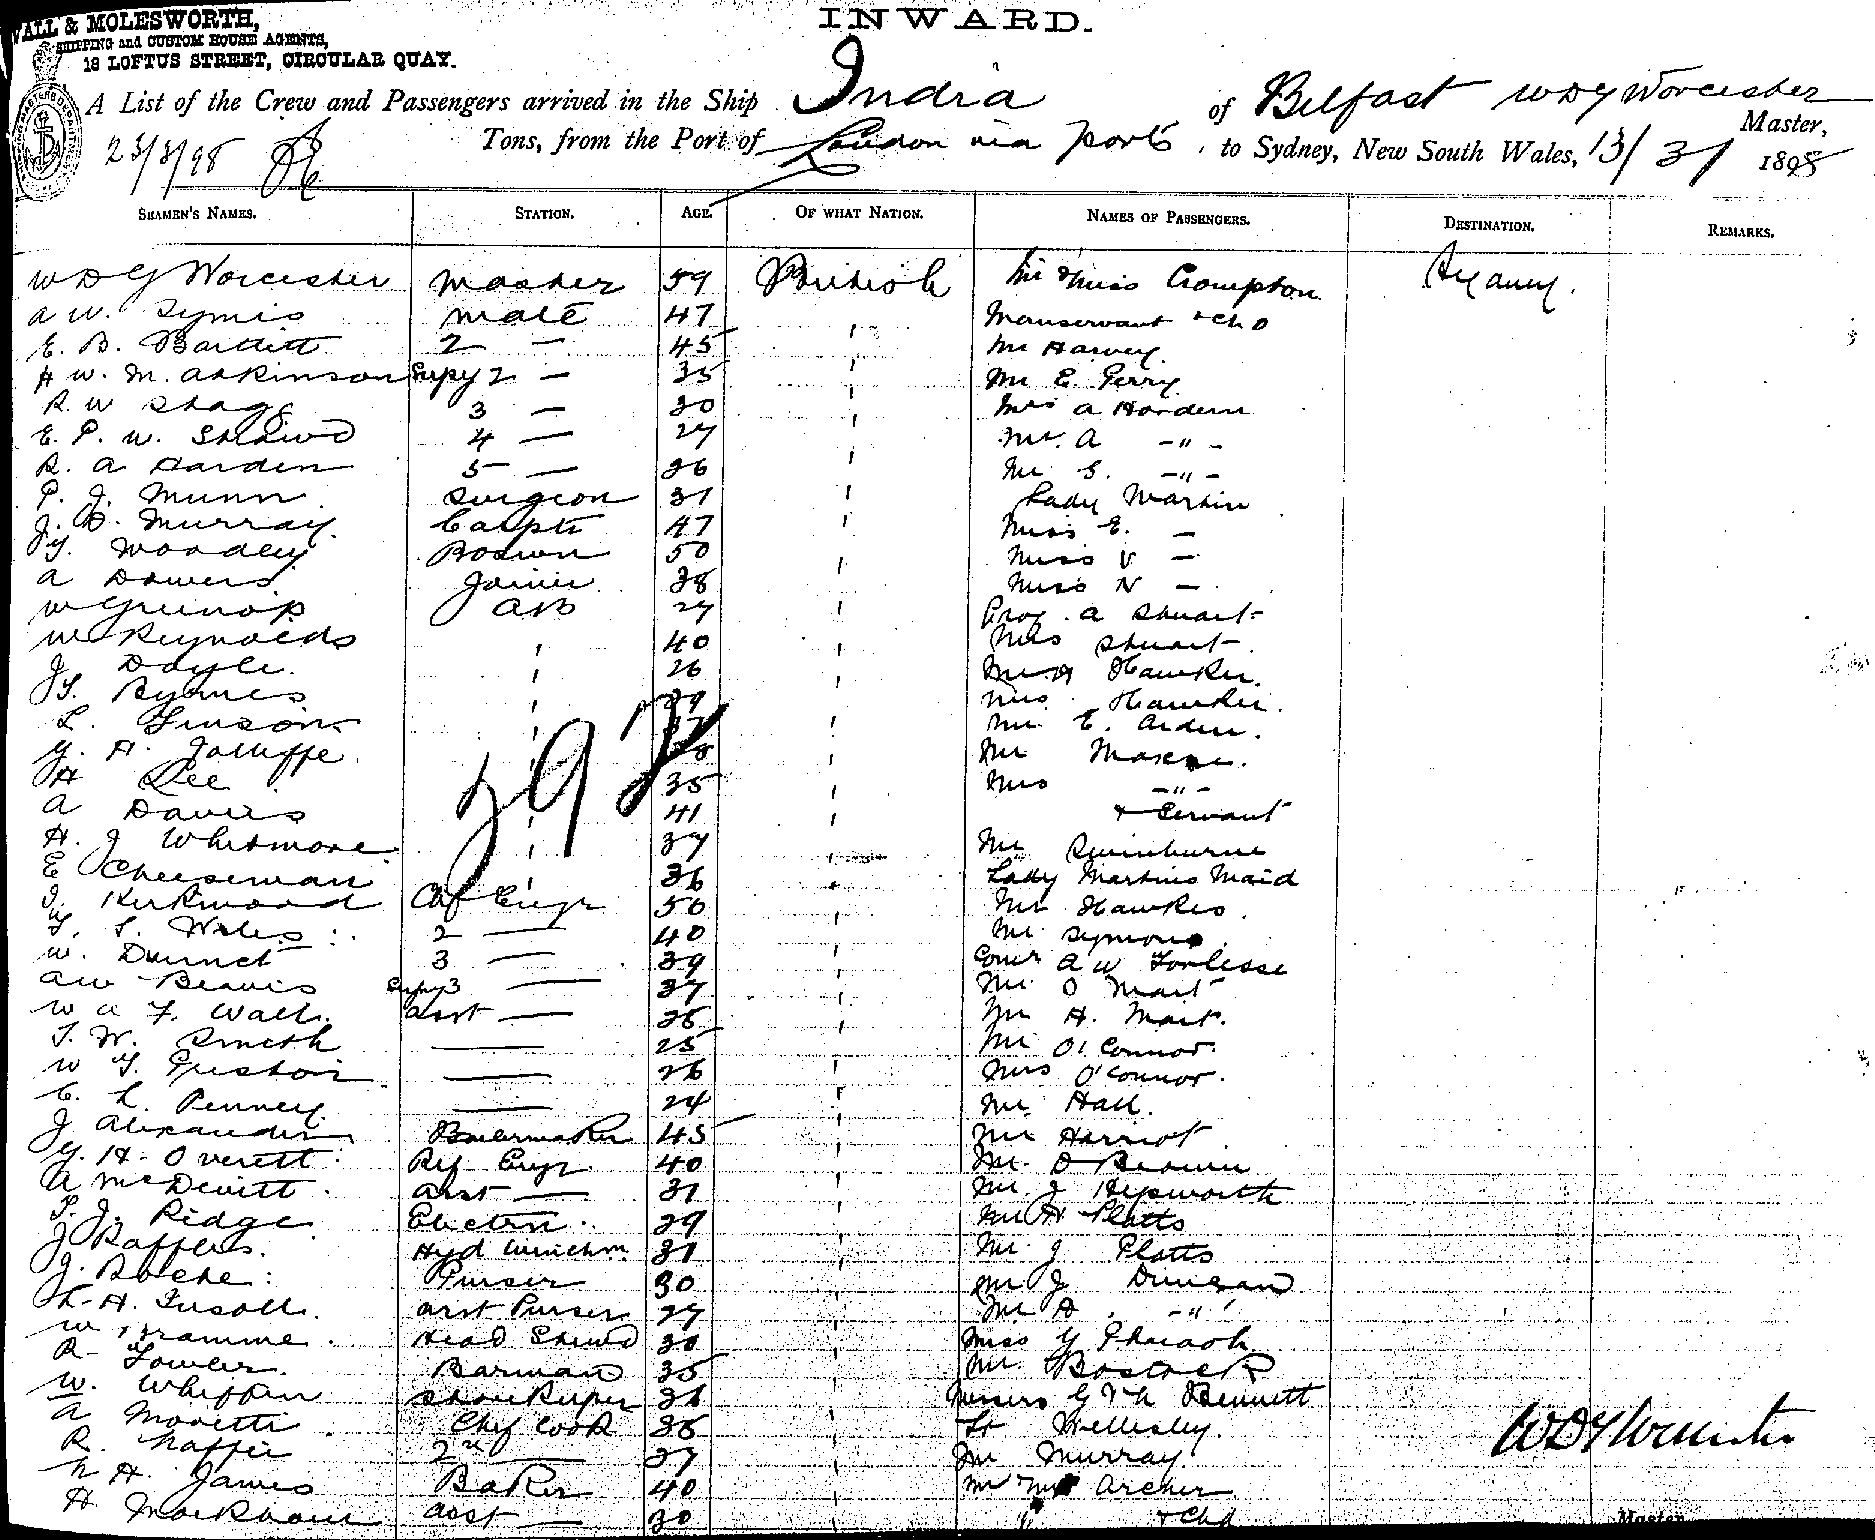 WALL & MOLESWORTH,
SHIPPING and CUSTOM HOUSE AGENTS,
18 LOFTUS STREET, CIRCULAR QUAY.
INWARD.
A List of the Crew and Passengers arrived in the Ship India of Belfast W D G Worcester Master,
23/3/98 Tons, from the Port of London via ports, to Sydney, New South Wales, 13/3/ 1898
SEAMEN'S NAMES. STATION. AGE. OF WHAT NATION. NAMES OF PASSENGERS. DESTINATION. REMARKS.
W D G Worcester Master 59 British Mr & Miss Crompton Sydney.
A W. Symis Mate 47 " Manservant & Chd
E. B. Bartlett 2 — 45 " Mr Harvey
H W. M. Atkinson Supy 2 — 35 " Mr E. Perry
R. W 3 — 30 " Mrs A Hordern
E. P. W. 4 — 27 " Mr. A — " —
R. A Harden 5 — 26 " Mr S. — " —
P. J. Munn Surgeon 31 " Lady Martin
J. B. Murray. Carptr 47 " Miss E. —
Woodley Boswn 50 " Miss V —
A Dowers Joiner 38 " Miss N —
W Greenop AB 27 " Prof. A Stuart
W Reynolds " 40 " Mrs Stuart
J. Doyle. " 26 " Mr A Hawker.
Byrnes " 29 " Mrs Hawker.
L. " " Mr. E. Arden.
G. H. Jolliffe " " Mr
H Lee 35 " Mrs — " —
A Davies 41 " & Servant
397
H. J Whitmore " 37 " Mr Swinburne
E Cheeseman " 36 " Lady Martins Maid
J. Kirkwood Chf Engr 50 " Mr Hawkes.
T. S. Wales 2 — 40 " Mr. Symons
W. Dunnet 3 — 39 " Comr A W
A W Beavis Supy 3 — 37 " Mr. O Mait
W A F. Wall. Asst — 26 " Mr H. Mait.
T. W. Smeth — 25 " Mr O'Connor.
W — 26 " Mrs O'Connor.
C. L. Penney. — 24 " Mr Hall.
J Alexander Boilermaker 45 " Mr Herriot
G. H. Overett Ref Engr 40 " Mr. D Brown
A McDevitt. Asst — 31 " Mr. J Hepworth
T. J. Ridge Electrn. 29 " Mr H Platts
J Rafferes. Hyd Winchm 31 " Mr J Platts
J. Roche: Purser 30 " Mr J Duncan
L. H. Asst Purser 27 " Mr A. — " —
W. Head Stewd 30 " Miss G Pharaoh
R. Fowler Barman 35 " Mr. Bostock
W. Whiffin Storekeeper 36 " Messrs G & A Bennett
A Moretti Chef Cook 36 " Lt Wellesley.
R. Naffie 2nd — 37 " Mr Murray
N H. James Baker 40 " Mr Mrs Archer
H Markham Asst — 30 & Chd
W D G Worcester
Master